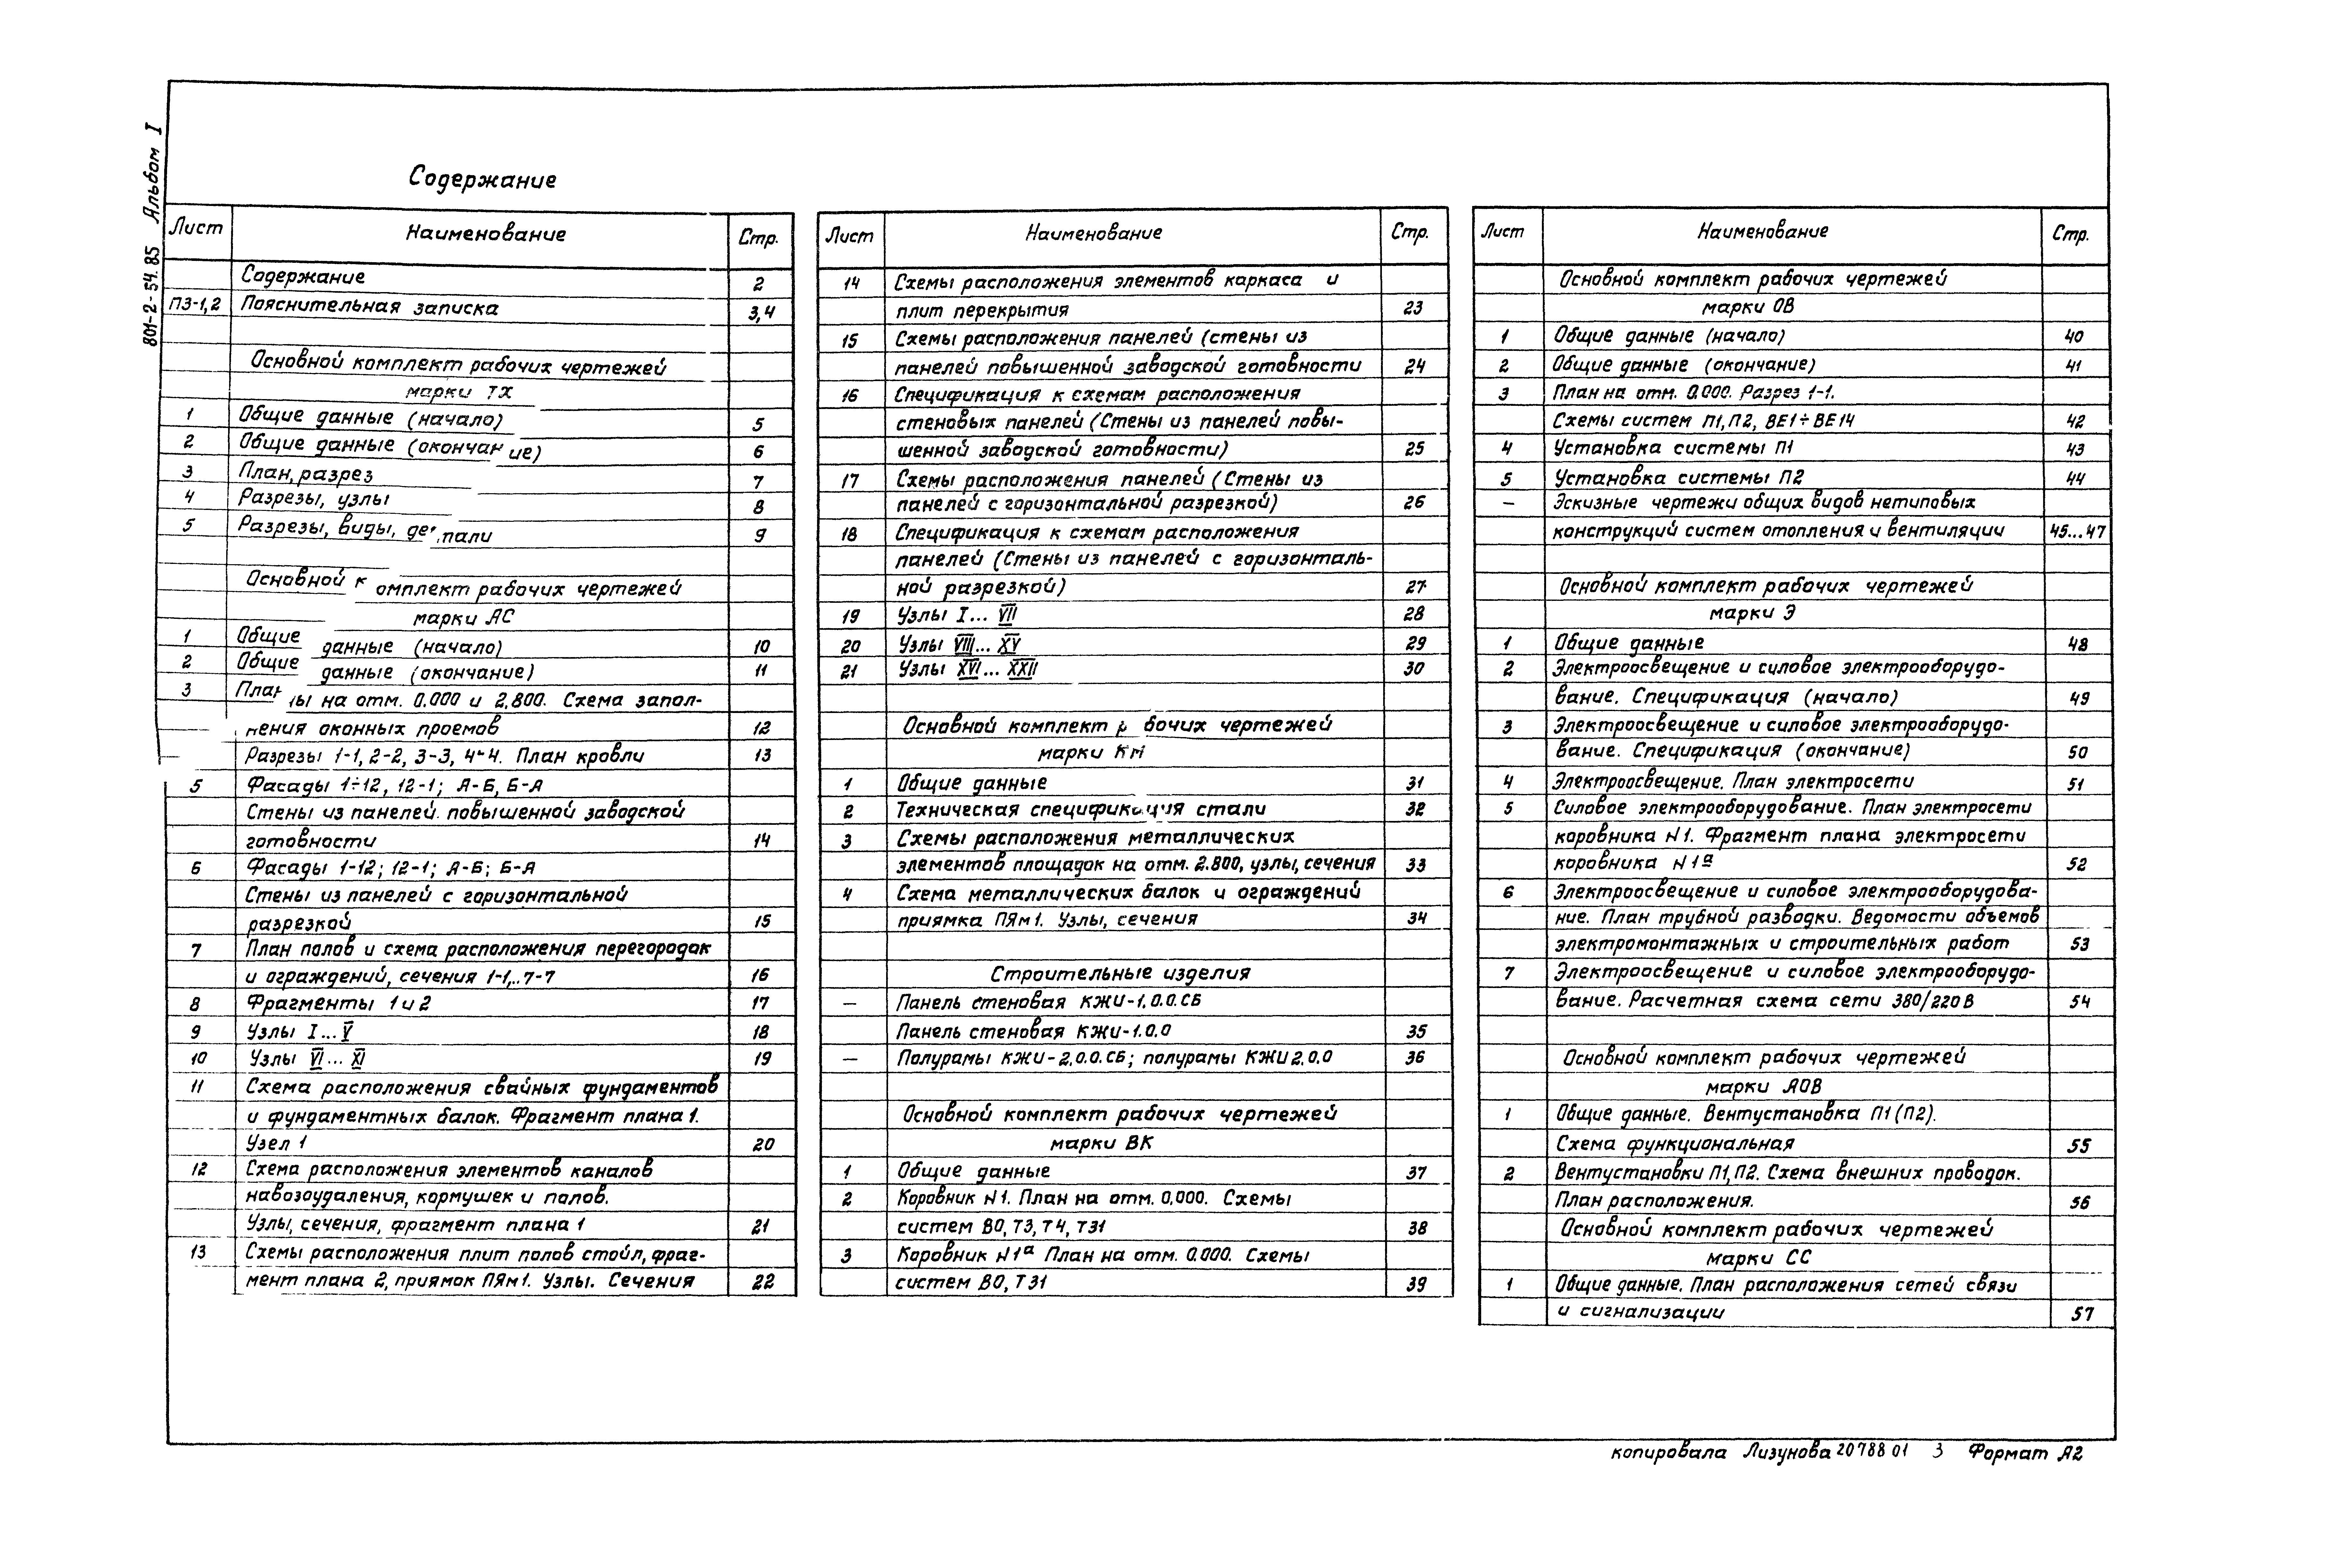 801-2-54.85 Альбом I
Содержание
Лист Наименование Стр.
Содержание 2
ПЗ-1,2 Пояснительная записка 3,4
Основной комплект рабочих чертежей
марки ТХ
1 Общие данные (начало) 5
2 Общие данные (окончание) 6
3 План, разрез 7
4 Разрезы, узлы 8
5 Разрезы, виды, детали 9
Основной комплект рабочих чертежей
марки АС
1 Общие данные (начало) 10
2 Общие данные (окончание) 11
3 Планы на отм. 0.000 и 2.800. Схема запол-
нения оконных проемов 12
Разрезы 1-1, 2-2, 3-3, 4-4. План кровли 13
5 Фасады 1÷12, 12-1; А-Б, Б-А
Стены из панелей повышенной заводской
готовности 14
6 Фасады 1-12; 12-1; А-Б; Б-А
Стены из панелей с горизонтальной
разрезкой 15
7 План полов и схема расположения перегородок
и ограждений, сечения 1-1,..7-7 16
8 Фрагменты 1 и 2 17
9 Узлы I...V 18
10 Узлы VI...XI 19
11 Схема расположения свайных фундаментов
и фундаментных балок. Фрагмент плана 1.
Узел 1 20
12 Схема расположения элементов каналов
навозоудаления, кормушек и полов.
Узлы, сечения, фрагмент плана 1 21
13 Схемы расположения плит полов стойл, фраг-
мент плана 2, приямок ПЯм1. Узлы. Сечения 22
Лист Наименование Стр.
14 Схемы расположения элементов каркаса и
плит перекрытия 23
15 Схемы расположения панелей (стены из
панелей повышенной заводской готовности 24
16 Спецификация к схемам расположения
стеновых панелей (Стены из панелей повы-
шенной заводской готовности) 25
17 Схемы расположения панелей (Стены из
панелей с горизонтальной разрезкой) 26
18 Спецификация к схемам расположения
панелей (Стены из панелей с горизонталь-
ной разрезкой) 27
19 Узлы I... VII 28
20 Узлы VIII... XV 29
21 Узлы XVI... XXII 30
Основной комплект рабочих чертежей
марки КМ
1 Общие данные 31
2 Техническая спецификация стали 32
3 Схемы расположения металлических
элементов площадок на отм. 2.800, узлы, сечения 33
4 Схема металлических балок и ограждений
приямка ПЯм1. Узлы, сечения 34
Строительные изделия
— Панель стеновая КЖИ-1.0.0.СБ
Панель стеновая КЖИ-1.0.0 35
— Полурамы КЖИ-2.0.0.СБ; полурамы КЖИ 2.0.0 36
Основной комплект рабочих чертежей
марки ВК
1 Общие данные 37
2 Коровник N1. План на отм. 0.000. Схемы
систем В0, Т3, Т4, Т31 38
3 Коровник N1а План на отм. 0.000. Схемы
систем В0, Т31 39
Лист Наименование Стр.
Основной комплект рабочих чертежей
марки ОВ
1 Общие данные (начало) 40
2 Общие данные (окончание) 41
3 План на отм. 0.000. Разрез 1-1.
Схемы систем П1, П2, ВЕ1÷ВЕ14 42
4 Установка системы П1 43
5 Установка системы П2 44
— Эскизные чертежи общих видов нетиповых
конструкций систем отопления и вентиляции 45...47
Основной комплект рабочих чертежей
марки Э
1 Общие данные 48
2 Электроосвещение и силовое электрооборудо-
вание. Спецификация (начало) 49
3 Электроосвещение и силовое электрооборудо-
вание. Спецификация (окончание) 50
4 Электроосвещение. План электросети 51
5 Силовое электрооборудование. План электросети
коровника N1. Фрагмент плана электросети
коровника N1а 52
6 Электроосвещение и силовое электрооборудова-
ние. План трубной разводки. Ведомости объемов
электромонтажных и строительных работ 53
7 Электроосвещение и силовое электрооборудо-
вание. Расчетная схема сети 380/220В 54
Основной комплект рабочих чертежей
марки АОВ
1 Общие данные. Вентустановка П1 (П2).
Схема функциональная 55
2 Вентустановки П1, П2. Схема внешних проводок.
План расположения. 56
Основной комплект рабочих чертежей
марки СС
1 Общие данные. План расположения сетей связи
и сигнализации 57
копировала Лизунова 20788 01 3 Формат А2